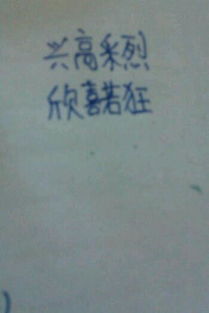 兴高采烈
欣喜若狂